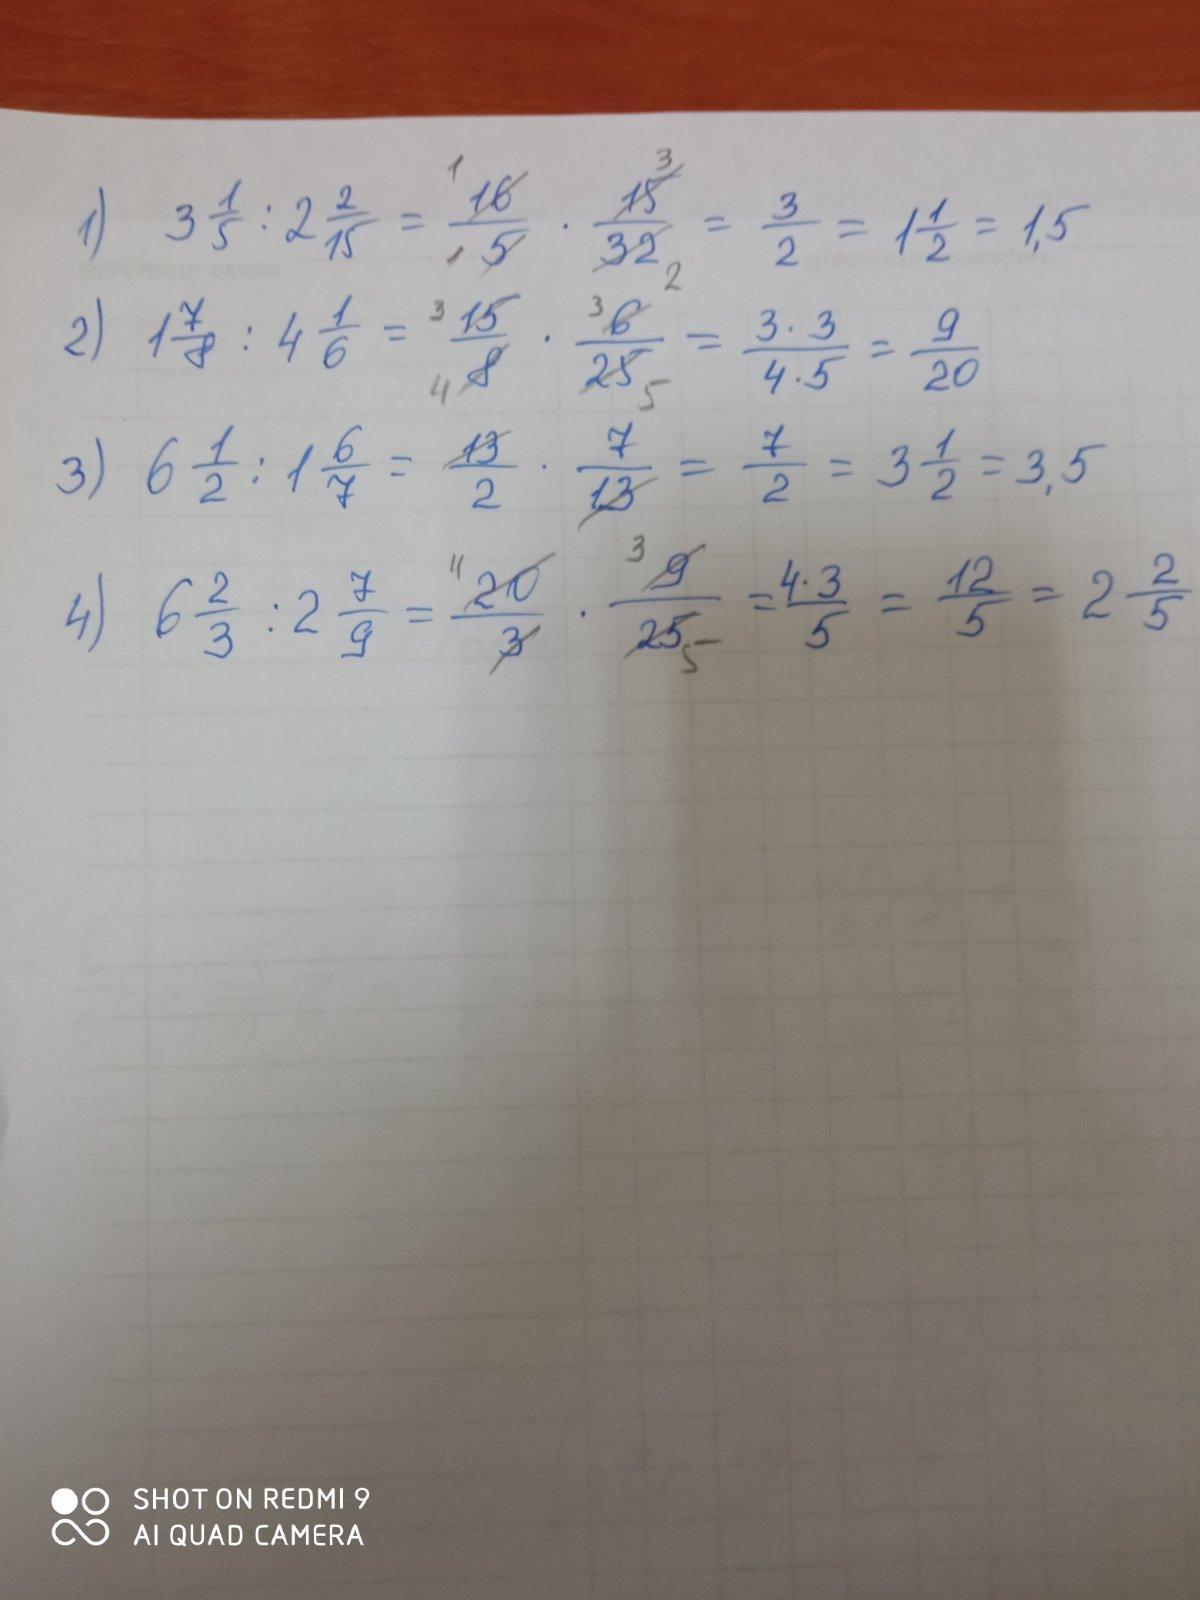 1) 3 1/5 : 2 2/15 = 16/5 · 15/32 = 3/2 = 1 1/2 = 1,5
2) 1 7/8 : 4 1/6 = 15/8 · 6/25 = 3·3/4·5 = 9/20
3) 6 1/2 : 1 6/7 = 13/2 · 7/13 = 7/2 = 3 1/2 = 3,5
4) 6 2/3 : 2 7/9 = 20/3 · 9/25 = 4·3/5 = 12/5 = 2 2/5
SHOT ON REDMI 9
AI QUAD CAMERA